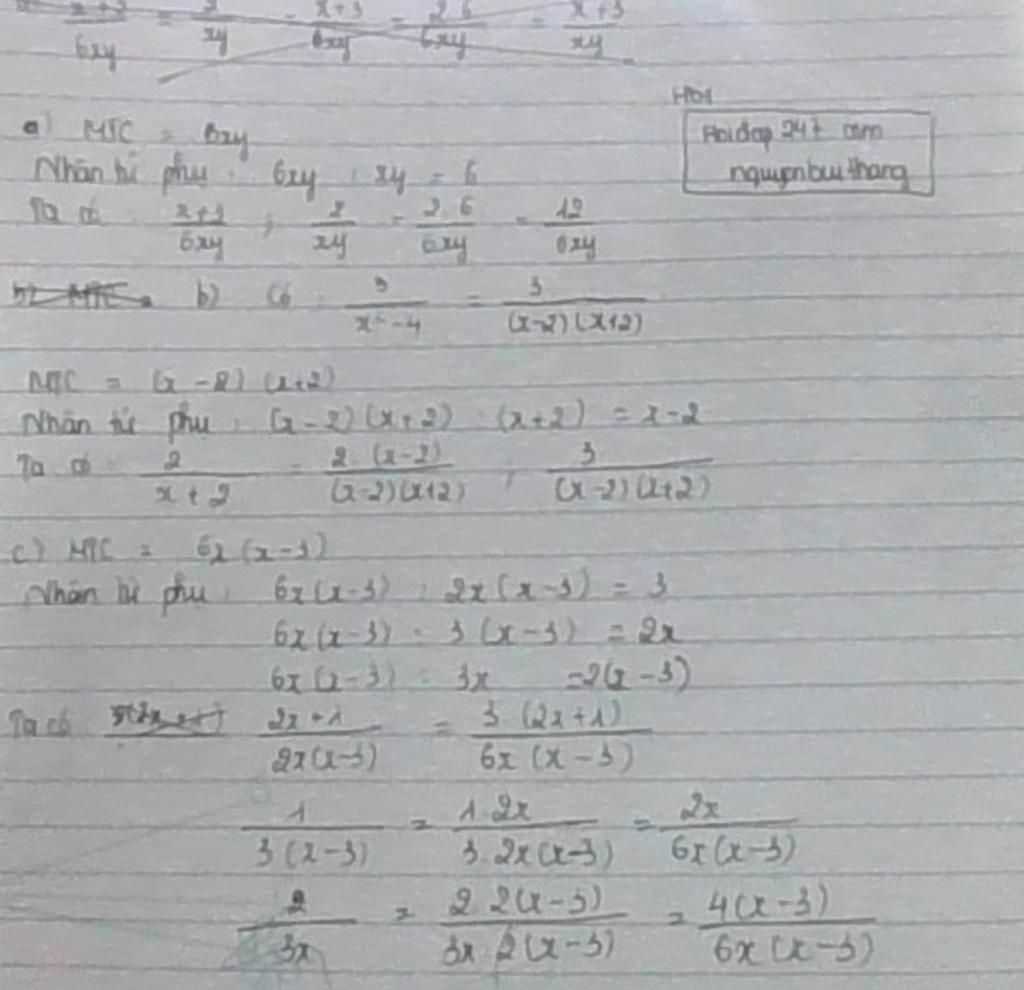 6xy xy 6xy 6xy xy
Hỏi
Hoidap 247 com
nguyenbuithang
a) MTC = 6xy
Nhân tử phụ: 6xy : xy = 6
Ta có: x+3/6xy ; 2/xy = 2.6/6xy = 12/6xy
b) Có: 3/x²-4 = 3/(x-2)(x+2)
MTC = (x-2)(x+2)
Nhân tử phụ: (x-2)(x+2) : (x+2) = x-2
Ta có: 2/x+2 = 2.(x-2)/(x-2)(x+2) ; 3/(x-2)(x+2)
c) MTC = 6x(x-3)
Nhân tử phụ: 6x(x-3) : 2x(x-3) = 3
6x(x-3) : 3(x-3) = 2x
6x(x-3) : 3x = 2(x-3)
Ta có: 2x+1/2x(x-3) = 3.(2x+1)/6x(x-3)
1/3(x-3) = 1.2x/3.2x(x-3) = 2x/6x(x-3)
2/3x = 2.2(x-3)/3x.2(x-3) = 4(x-3)/6x(x-3)